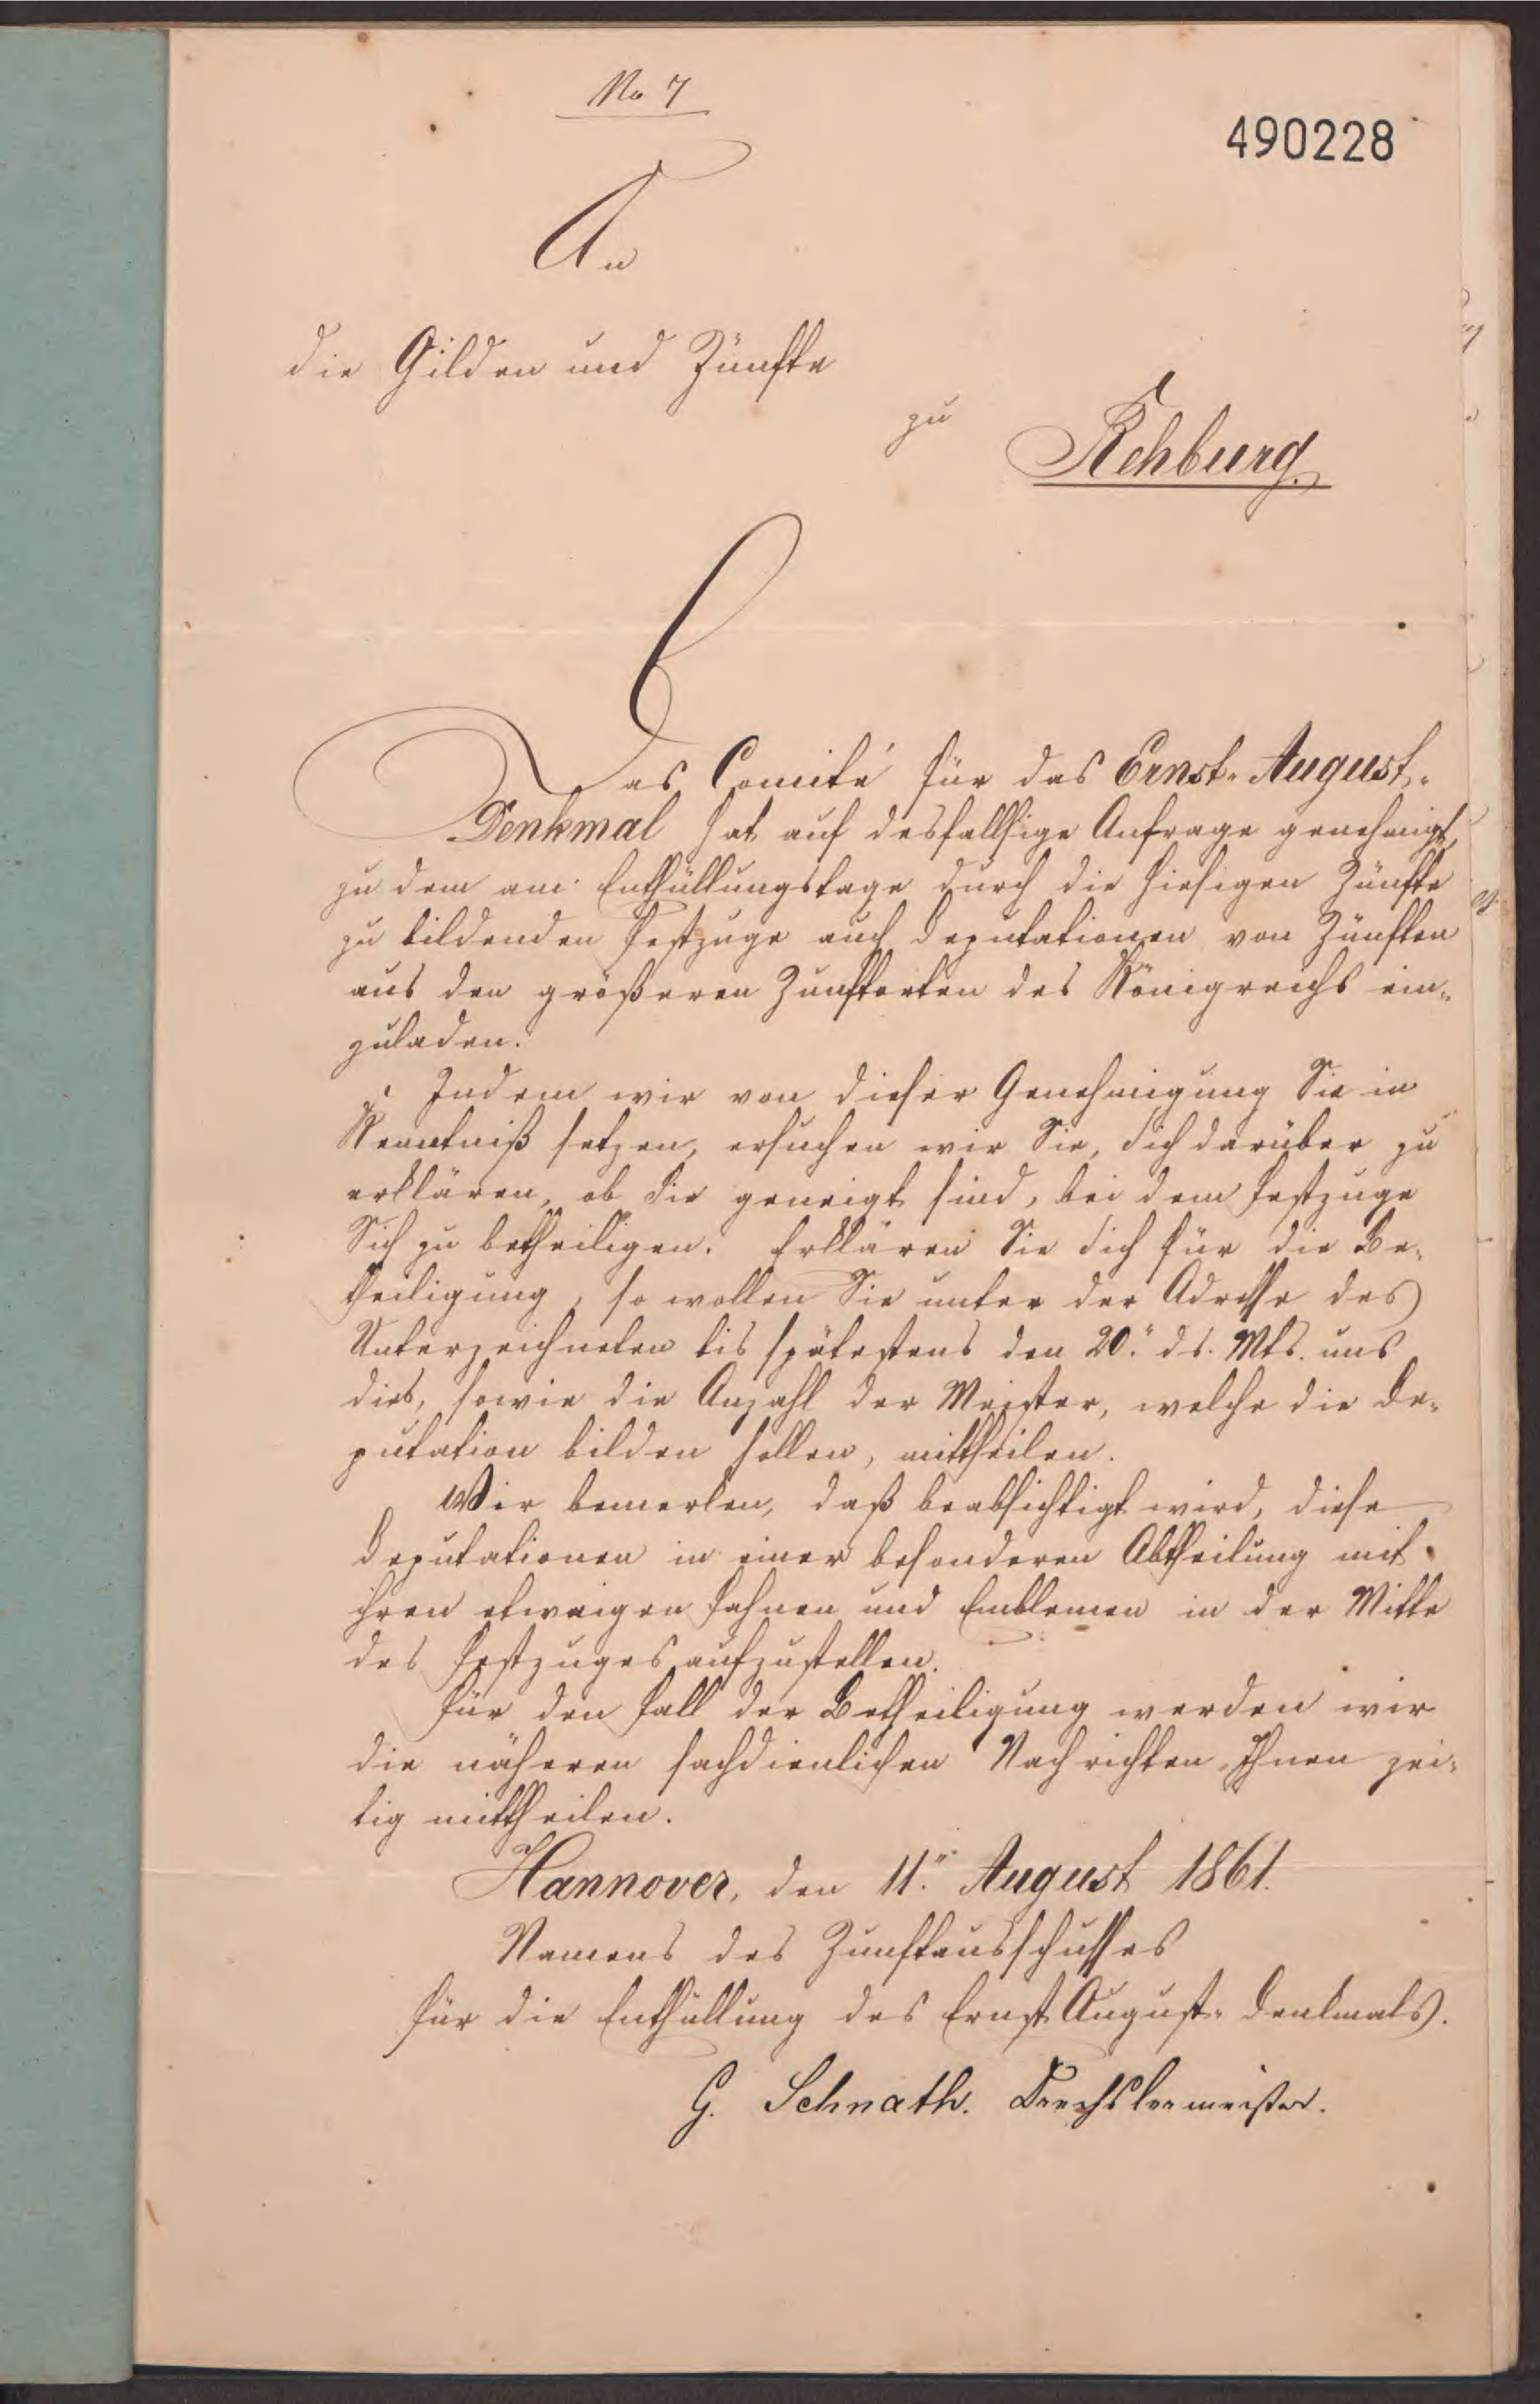 No 7
490228
An
die Gilden und Zünfte
zu
Rehburg.
Das Comité für das Ernst-August-
Denkmal hat auf desfallsige Anfrage genehmigt,
zu dem am Enthüllungstage durch die hiesigen Zünfte
zu bildenden Festzuge auch Deputationen von Zünften
aus den größeren Zunftorten des Königreichs ein-
zuladen.
Indem wir von dieser Genehmigung Sie in
Kenntniß setzen, ersuchen wir Sie, Sich darüber zu
erklären, ob Sie geneigt sind, bei dem Festzuge
Sich zu betheiligen. Erklären Sie Sich für die Be-
theiligung, so wollen Sie unter der Adresse des
Unterzeichneten bis spätestens den 20. ds. Mts. uns
dies, sowie die Anzahl der Meister, welche die De-
putation bilden sollen, mittheilen.
Wir bemerken, daß beabsichtigt wird, diese
Deputationen in einer besonderen Abtheilung mit
ihren etwaigen Fahnen und Emblemen in der Mitte
des Festzuges aufzustellen.
Für den Fall der Betheiligung werden wir
die näheren sachdienlichen Nachrichten Ihnen zei-
tig mittheilen.
Hannover, den 11. August 1861.
Namens des Zunftausschusses
für die Enthüllung des Ernst August-Denkmals.
G. Schnath. Drechslermeister.